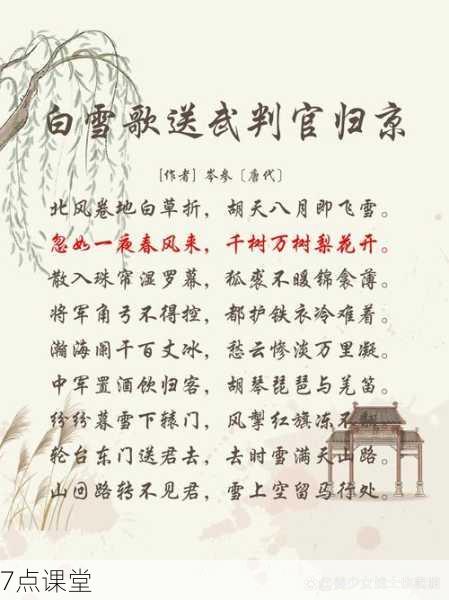 白雪歌送武判官归京
[作者] 岑参〔唐代〕
北风卷地白草折，胡天八月即飞雪。
忽如一夜春风来，千树万树梨花开。
散入珠帘湿罗幕，狐裘不暖锦衾薄。
将军角弓不得控，都护铁衣冷难着。
瀚海阑干百丈冰，愁云惨淡万里凝。
中军置酒饮归客，胡琴琵琶与羌笛。
纷纷暮雪下辕门，风掣红旗冻不翻。
轮台东门送君去，去时雪满天山路。
山回路转不见君，雪上空留马行处。
7点课堂